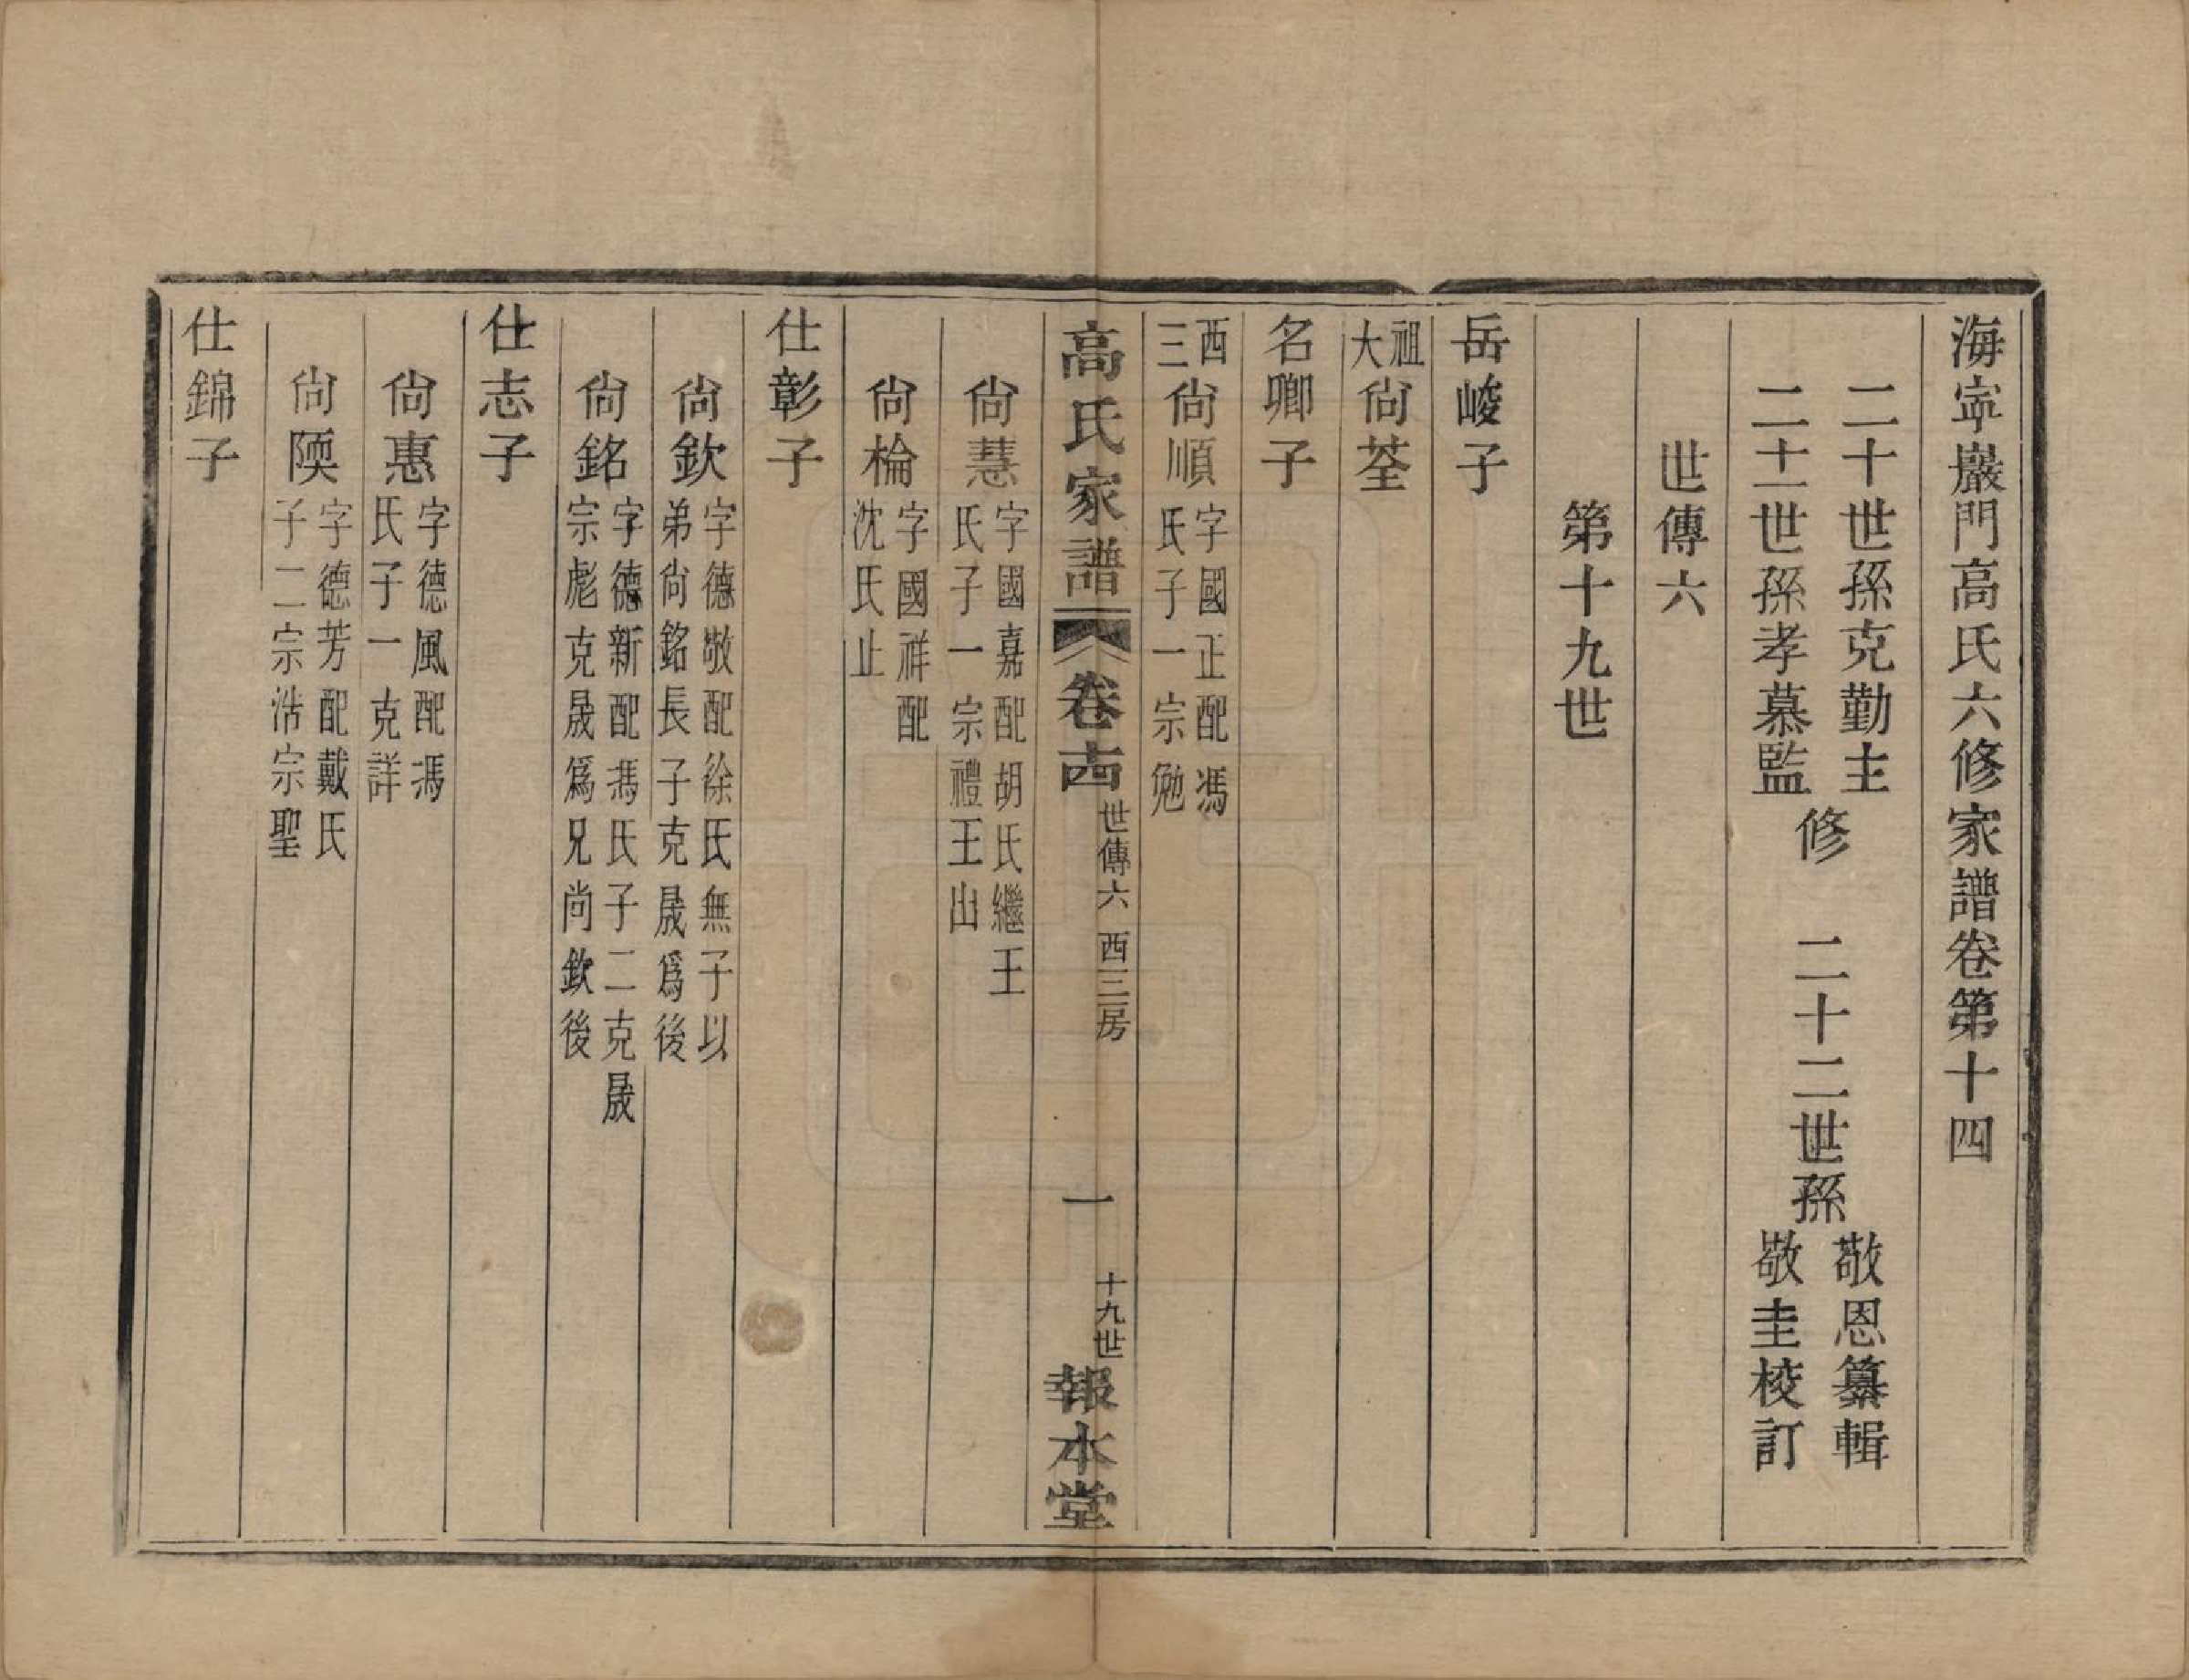 海寍巖門高氏六修家譜卷第十四
二十世孫克勤主
二十一世孫孝慕監
修
二十二世孫
敬恩纂輯
敬圭校訂
世傳六
第十九世
岳峻子
祖大尙荃
名卿子
西三尙順
字國正配馮
氏子一宗勉
高氏家譜
卷十四
世傳六 西三房
一
十九世
報本堂
尙慧
字國嘉配胡氏繼王
氏子一宗禮王出
尙棆
字國祥配
沈氏止
仕彰子
尙欽
字德敬配徐氏無子以
弟尙銘長子克晟爲後
尙銘
字德新配馮氏子二克晟
宗彪克晟爲兄尙欽後
仕志子
尙惠
字德風配馮
氏子一克詳
尙陾
字德芳配戴氏
子二宗浩宗聖
仕錦子